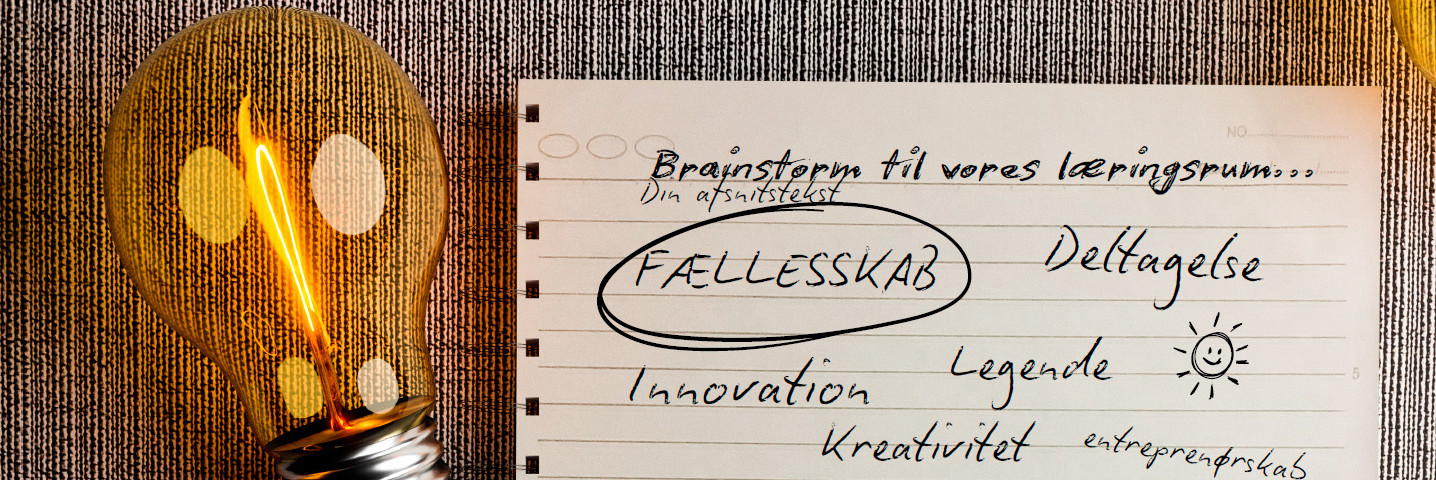 NO
Brainstorm til vores læringsrum...
Din afsnitstekst
FÆLLESSKAB
Deltagelse
Legende
5
Innovation
Kreativitet
entreprenørskab